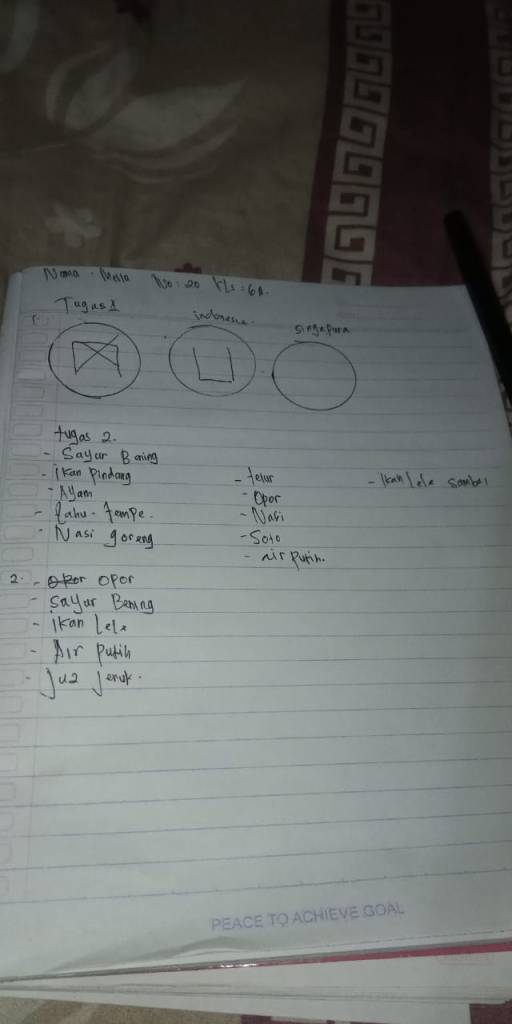 Nama : No : 20 Kls : 6A.
Tugas 1
1.
indonesia
singapura
tugas 2.
- Sayur Bening
- ikan Pindang
- Ayam
- tahu - tempe.
- Nasi goreng
- telur
- Opor
- Nasi
- Soto
- air putih.
- ikan lele sambal
2. - opor
- Sayur Bening
- ikan Lele
- Air putih
- Juz jeruk.
PEACE TO ACHIEVE GOAL